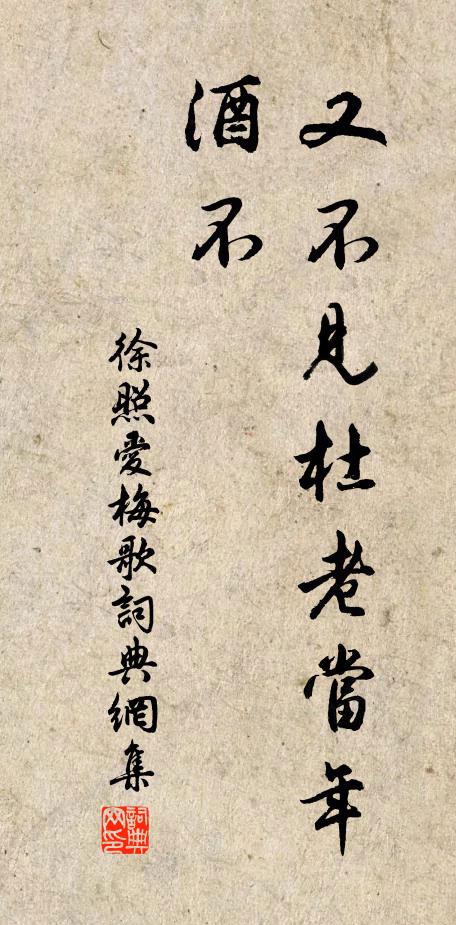 又不見杜老當年
酒不
徐照愛梅歌詞典網集
詞典網印